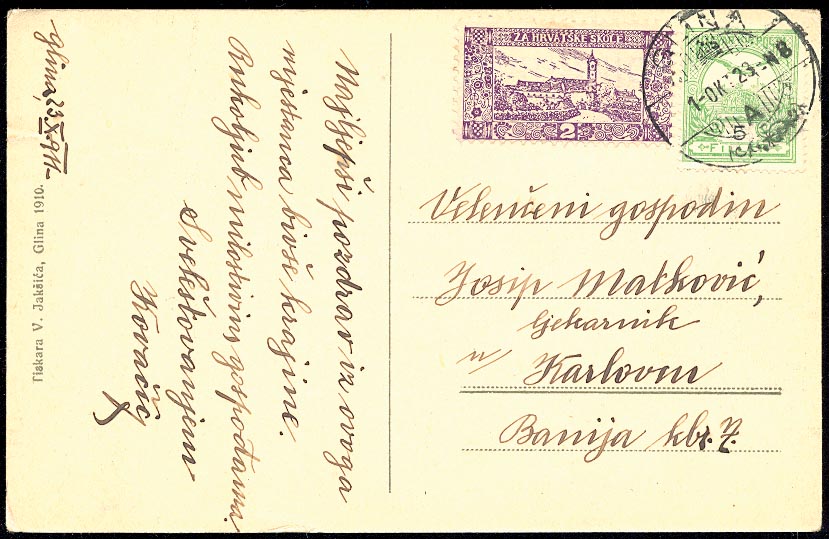 Glina, 23 X 911.
Najljepši pozdrav iz ovoga
mještanca bivše krajine.
Rukoljub milostivim gospođama
Svekštovanjem
Kovačić
Tiskara V. Jakšića, Glina 1910.
ZA HRVATSKE ŠKOLE
2
1-OKT 23-N8
A
5
FI
Velenčeni gospodin
Josip Matković,
ljekarnik
u/ Karlovcu
Banija kbr. 7.